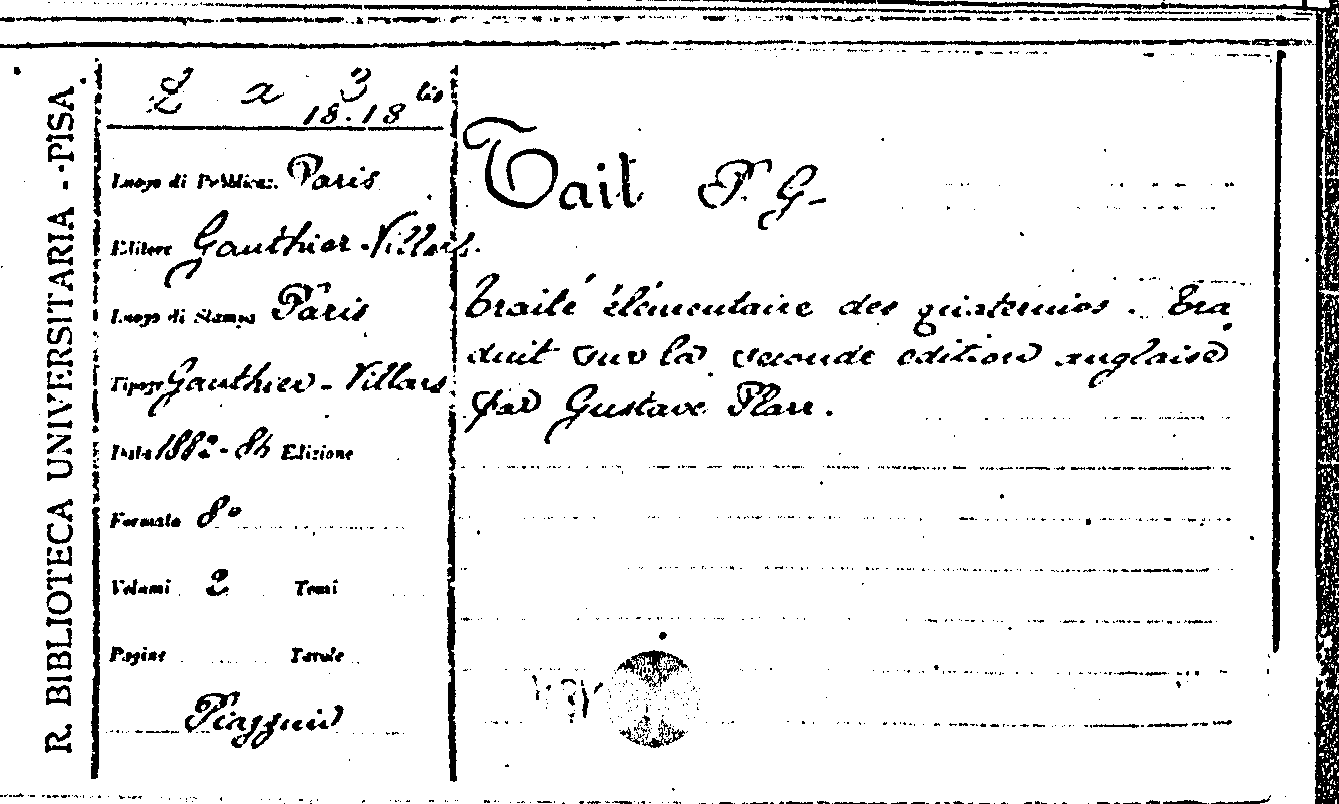 R. BIBLIOTECA UNIVERSITARIA - PISA
a 3
18.18 bis
Luogo di Pubblicaz. Paris
Editore Gauthier-Villars.
Luogo di Stampa Paris
Tipogr Gauthier-Villars
Data 1882-84 Edizione
Formato 8°
Volumi 2 Tomi
Pagine Tavole
Tait P. G-
Traité élémentaire des quaternios. Tra
duit sur la seconde edition anglaise
par Gustave Plarr.